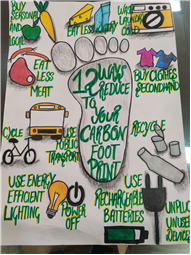 BUY
SEASONAL
AND
LOCAL
EAT LESS DAIRY
WASH
LAUNDRY
COLD
EAT
LESS
MEAT
12 WAYS
REDUCE
TO
YOUR
CARBON
FOOT
PRINT
BUY CLOTHES
SECONDHAND
CYCLE
USE
PUBLIC
TRANSPORT
RECYCLE
USE ENERGY
EFFICIENT
LIGHTING
POWER
OFF
USE
RECHARGEABLE
BATTERIES
UNPLUG
UNUSED
DEVICES